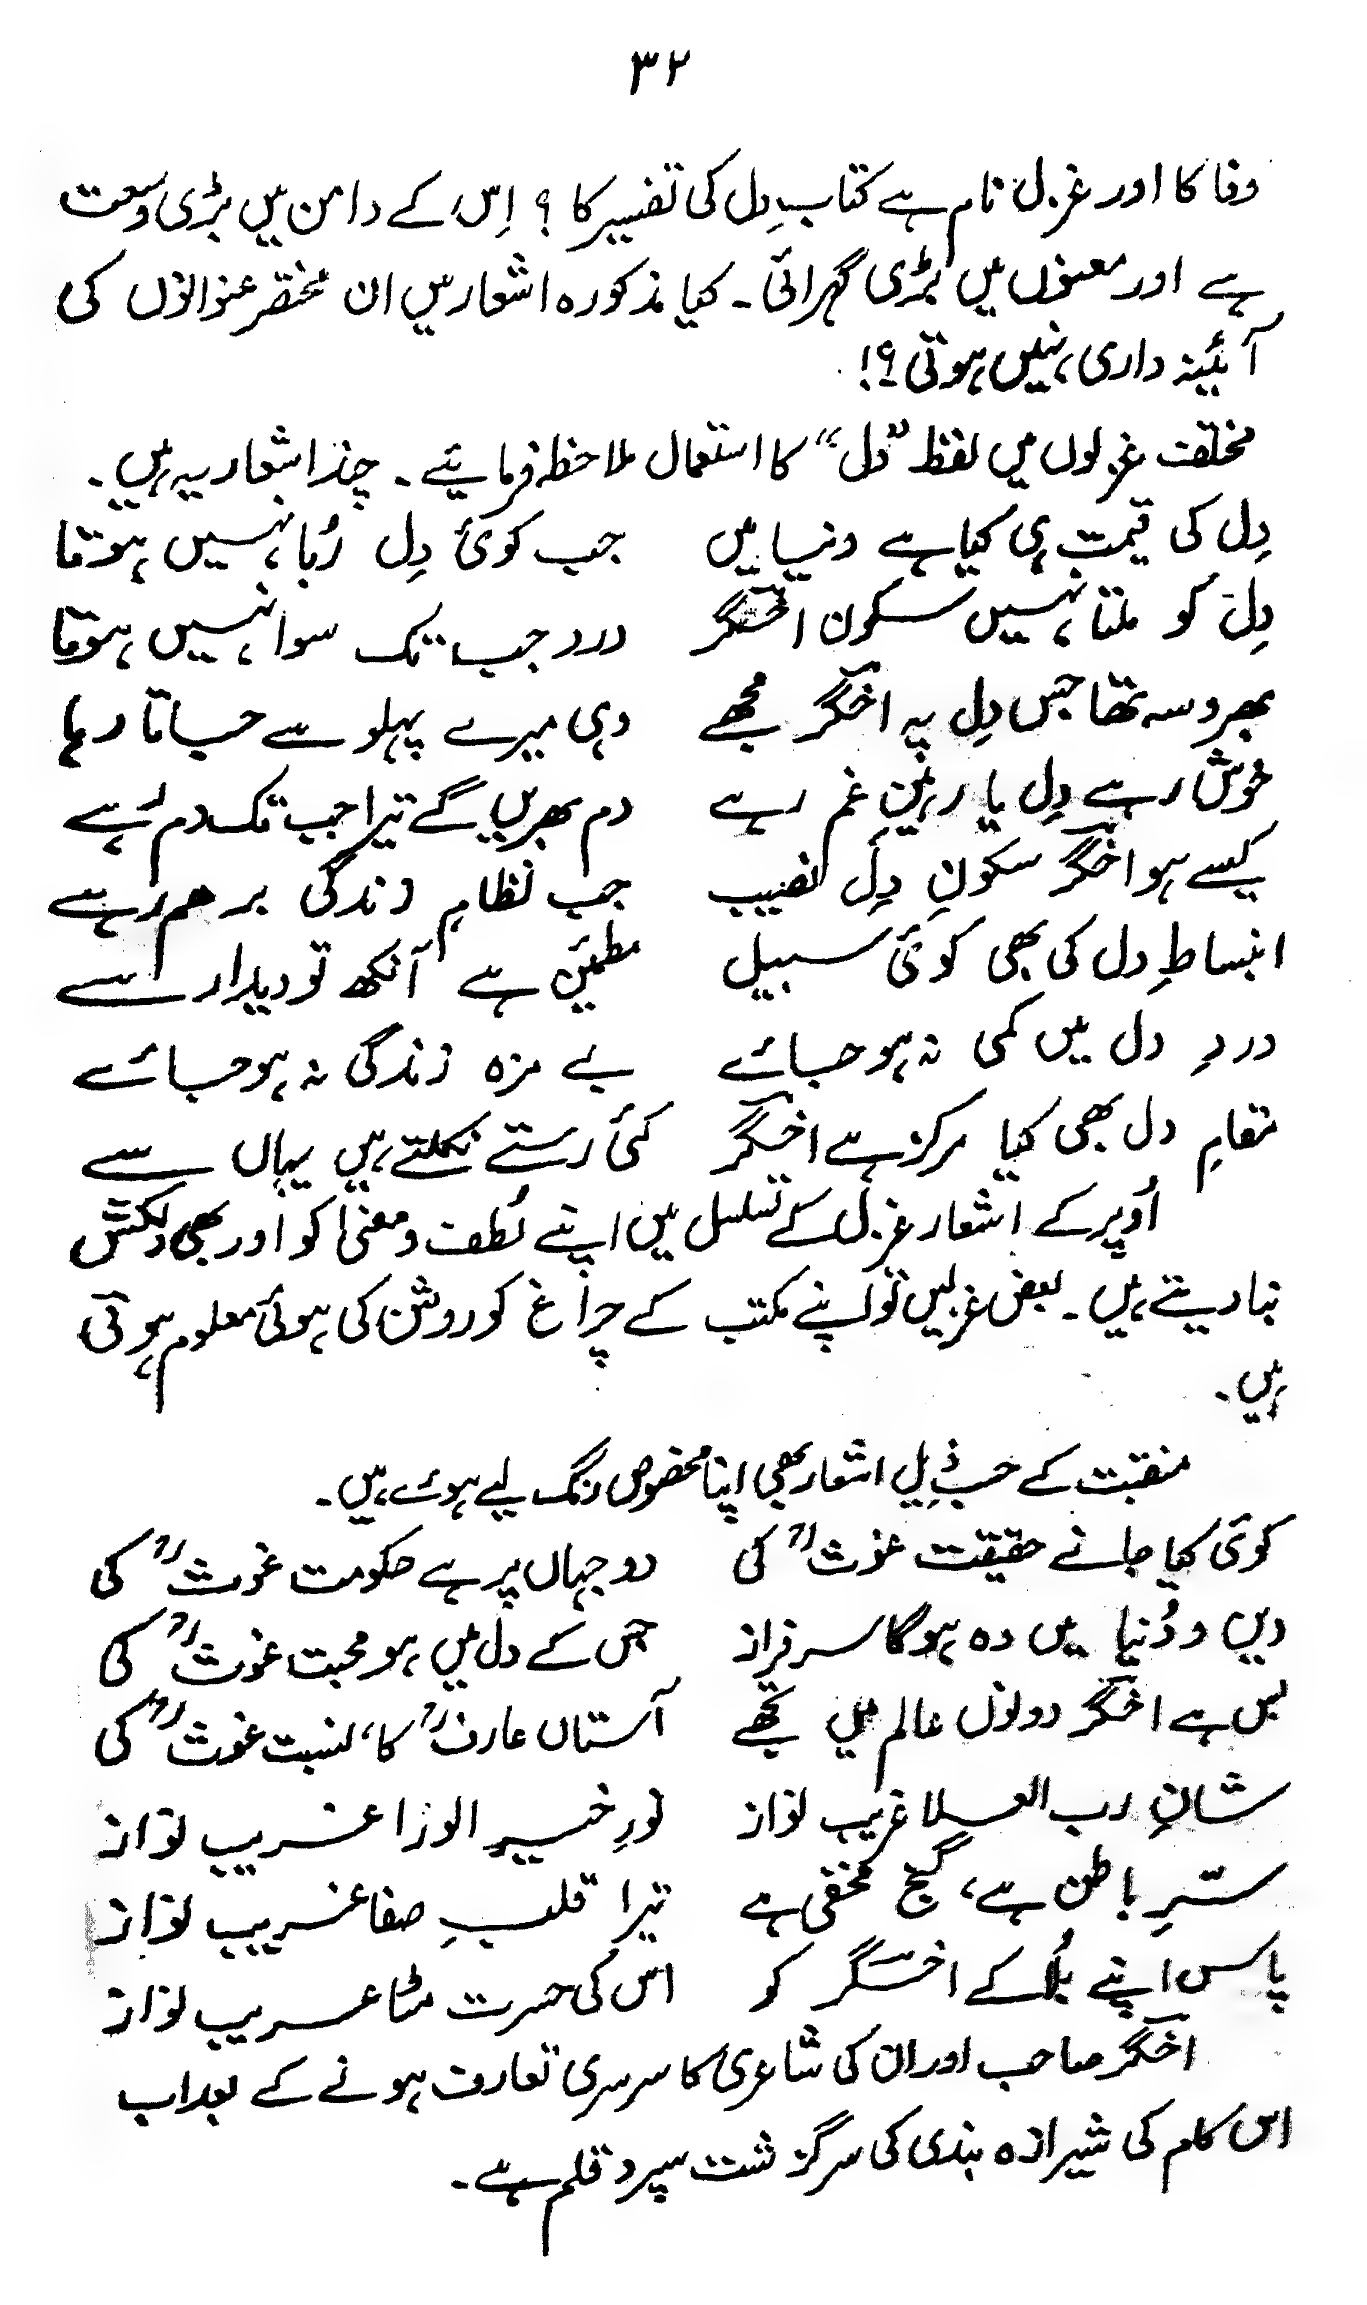 ۳۲
وفا کا اور غزل نام ہے کتابِ دِل کی تفسیر کا ؟ اِس کے دامن میں بڑی وسعت
ہے اور معنوں میں بڑی گہرائی ۔ کیا مذکورہ اشعار میں ان مختصر عنوانوں کی
آئینہ داری نہیں ہوتی ؟!
مختلف غزلوں میں لفظ ”دل“ کا استعمال ملاحظہ فرمائیے ۔ چند اشعار یہ ہیں ۔
دِل کی قیمت ہی کیا ہے دنیا میں جب کوئی دِل رُبا نہیں ہوتا
دِل کو ملتا نہیں سکون اخگرؔ درد جب تک سوا نہیں ہوتا
بھروسہ تھا جس دِل پہ اخگرؔ مجھے وہی میرے پہلو سے جاتا رہا
خوش رہے دِل یا رہینِ غم رہے دم بھریں گے تیرا جب تک دم رہے
کیسے ہو اخگرؔ سکونِ دِل نصیب جب نظامِ زندگی برہم رہے
انبساطِ دل کی بھی کوئی سبیل مطمئن ہے آنکھ تو دیدار سے
دردِ دل میں کمی نہ ہو جائے بے مزہ زندگی نہ ہو جائے
مقامِ دل بھی کیا مرکز ہے اخگرؔ کئی رستے نکلتے ہیں یہاں سے
اُوپر کے اشعار غزل کے تسلسل میں اپنے لُطف و معنیٰ کو اور بھی دلکش
بنا دیتے ہیں ۔ بعض غزلیں تو اپنے مکتب کے چراغ کو روشن کی ہوئی معلوم ہوتی
ہیں ۔
منقبت کے حسبِ ذیل اشعار بھی اپنا مخصوص رنگ لیے ہوئے ہیں ۔
کوئی کیا جانے حقیقت غوثؒ کی دو جہاں پر ہے حکومت غوثؒ کی
دیں و دُنیا میں وہ ہوگا سرفراز جس کے دل میں ہو محبت غوثؒ کی
بس ہے اخگرؔ دونوں عالم میں تجھے آستاں عارفؒ کا، نسبت غوثؒ کی
شانِ رب العلا غریب نواز نورِ خیر الوریٰ غریب نواز
سّرِ باطن ہے، گنج مخفی ہے تیرا قلبِ صفا غریب نواز
پاس اپنے بُلا کے اخگرؔ کو اس کی حسرت مٹا غریب نواز
اخگرؔ صاحب اور ان کی شاعری کا سرسری تعارف ہونے کے بعد اب
اس کام کی شیرازہ بندی کی سرگزشت سپردِ قلم ہے ۔